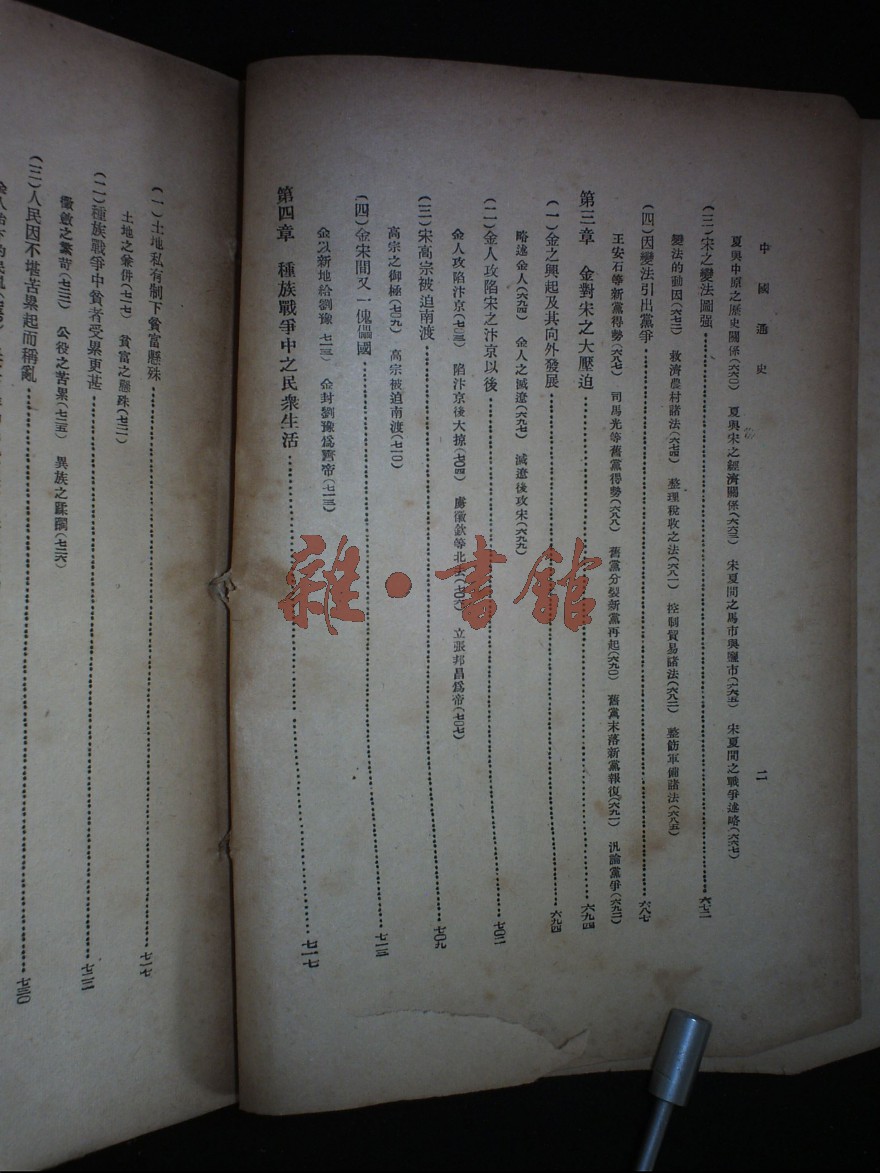 中國通史
二
夏與中原之歷史關係(六六〇) 夏與宋之經濟關係(六六三) 宋夏間之馬市與鹽市(六六五) 宋夏間之戰爭述略(六六七)
(三)宋之變法圖强……六七二
變法的動因(六七二) 救濟農村諸法(六七四) 整理稅收之法(六八一) 控制貿易諸法(六八二) 整飭軍備諸法(六八五)
(四)因變法引出黨爭……六八七
王安石等新黨得勢(六八七) 司馬光等舊黨得勢(六八八) 舊黨分裂新黨再起(六九〇) 舊黨末落新黨報復(六九一) 汎論黨爭(六九二)
第三章 金對宋之大壓迫……六九四
(一)金之興起及其向外發展……六九四
略述金人(六九四) 金人之滅遼(六九七) 滅遼後攻宋(六九九)
(二)金人攻陷宋之汴京以後……七〇二
金人攻陷汴京(七〇二) 陷汴京後大掠(七〇四) 虜徽欽等北去(七〇六) 立張邦昌爲帝(七〇七)
(三)宋高宗被迫南渡……七〇九
高宗之御極(七〇九) 高宗被迫南渡(七一〇)
(四)金宋間又一傀儡國……七一二
金以新地給劉豫 金封劉豫爲齊帝(七一三)
第四章 種族戰爭中之民衆生活……七一七
(一)土地私有制下貧富懸殊……七一七
土地之兼併(七一七) 貧富之懸殊(七二一)
(二)種族戰爭中貧者受累更甚……七二二
徵斂之繁苛(七二二) 公役之苦累(七二五) 異族之蹂躪(七二六)
(三)人民因不堪苦累起而稱亂……七三〇
雜·書館